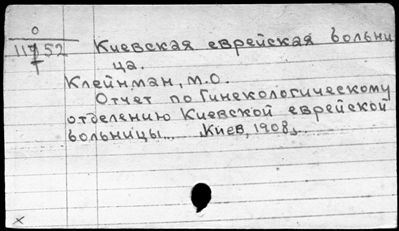 0
11752
Киевская еврейская больни
ца.
Клейнман, М.О.
Отчет по гинекологическому
отделению Киевской еврейской
больницы... Киев, 1908.
x